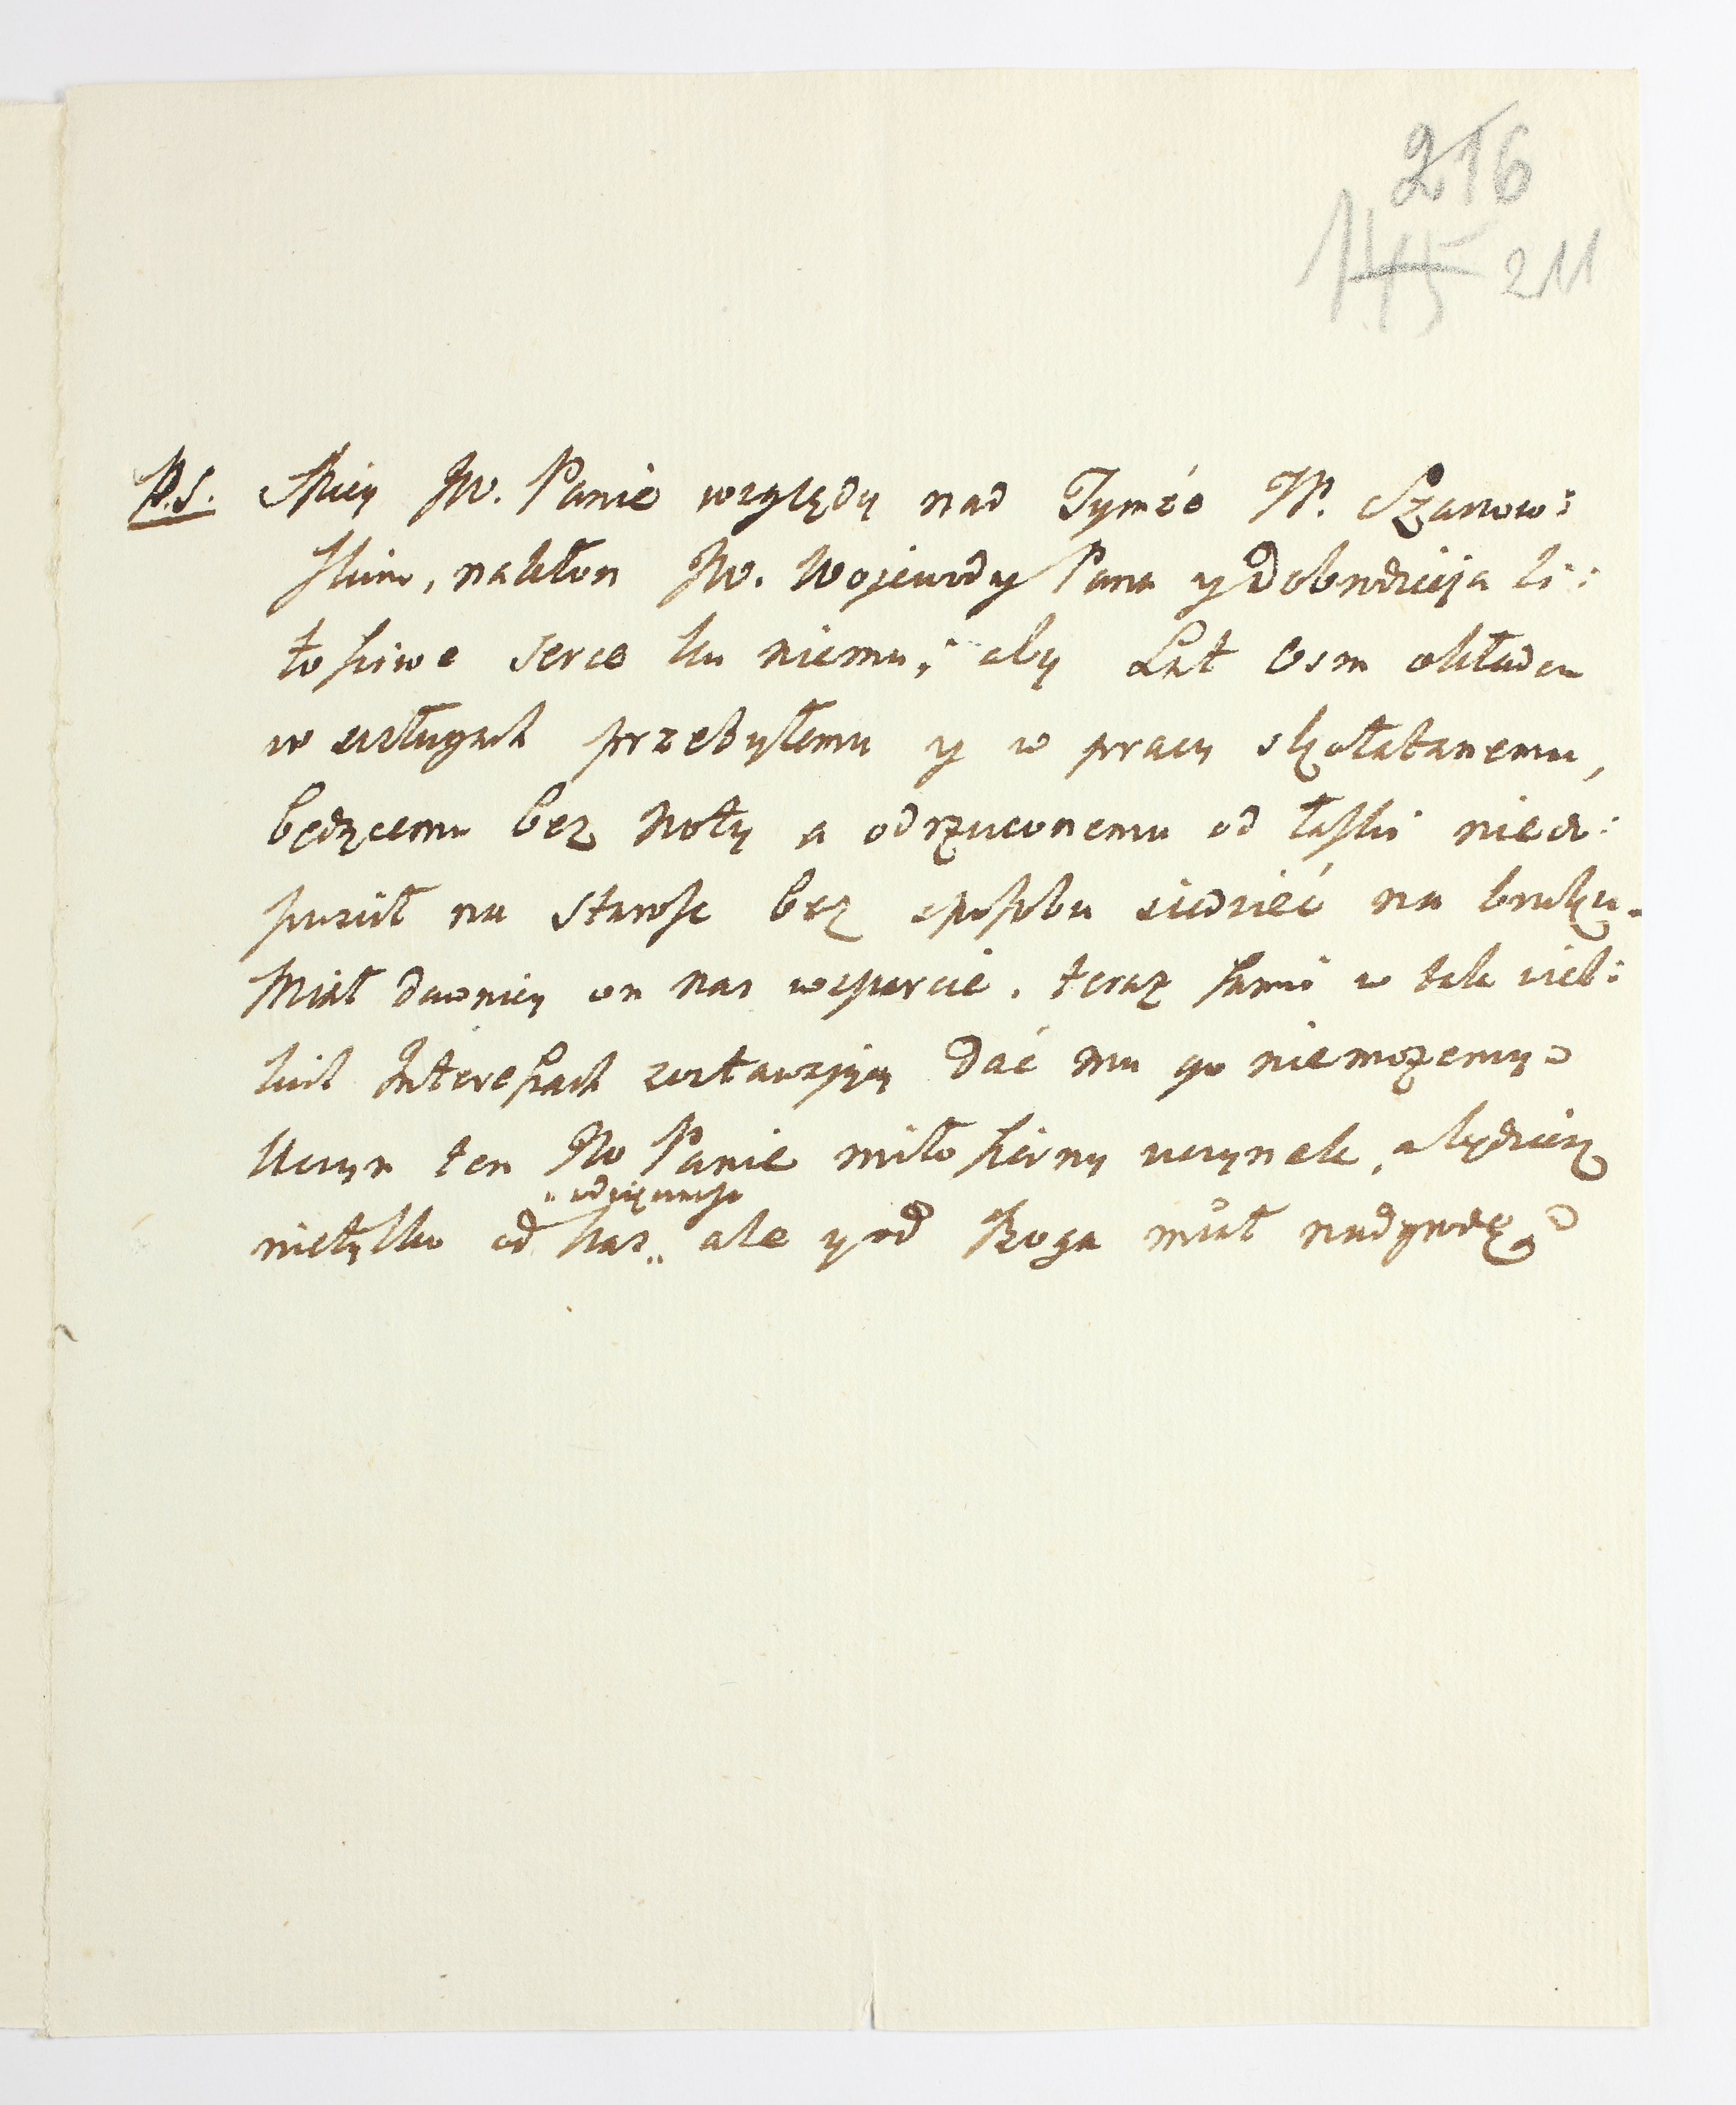 216
145 211
P.S. Miey JW. Panie względy nad Tymże W. Szanow:
skim, nakłon JW. Wojewody Pana y Dobrodzieja li:
tościwe serce ku niemu, aby Lat osm okładem
w usługach przebyłemu y w pracy skołatanemu,
będącemu bez noty a odrzuconemu od łaski niedo:
puścił na starość bez sposobu siedzieć na bruku.
Miał dawniey on nas wsparcie, teraz sami w tak wiel:
kich Interessach zostawający dać mu go niemożemy.
Uczyń ten JW Panie miłosierny uczynek, a będziesz
„wdzięczność
nietylko od nas„ ale y od Boga miał nadgrodę.